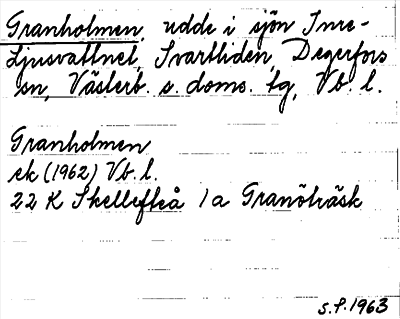 Granholmen, udde i sjön Inre-
Ljusvattnet, Svartliden, Degerfors
sn, Västerb. s. doms. tg, Vb. l.
Granholmen
ek (1962) Vb. l.
22 K Skellefteå 1a Granöträsk
S.P. 1963